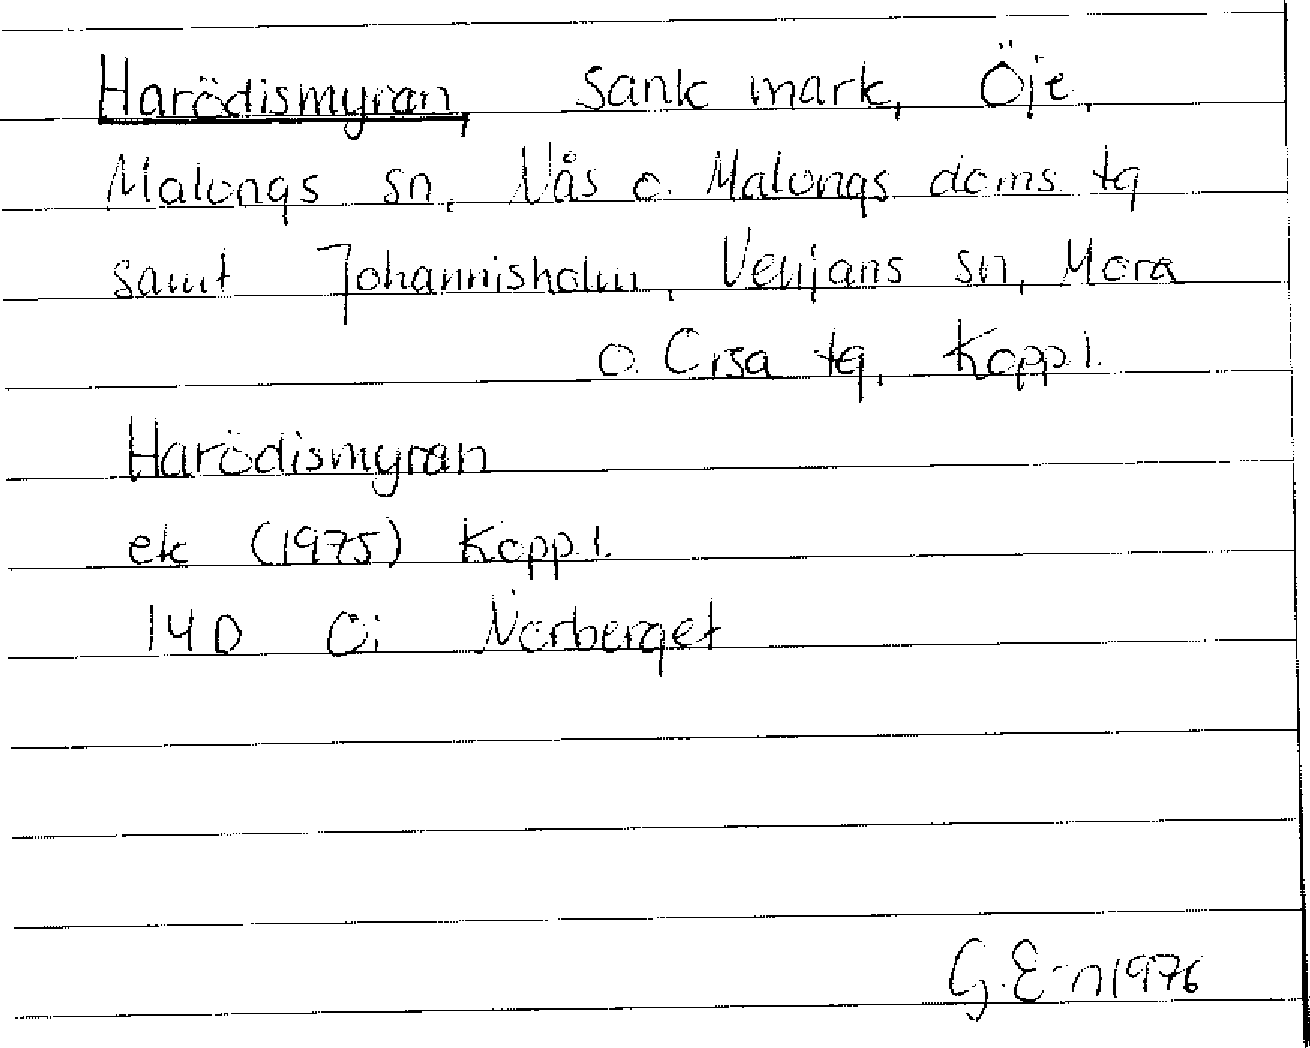 Harödismyran, sank mark, Öje,
Malungs sn, Nås o. Malungs doms. tg
samt Johannisholm, Venjans sn, Mora
o. Orsa tg, Kopp.l.
Harödismyran
ek (1975) Kopp.l.
14D 0i Norberget
G. E-n 1976